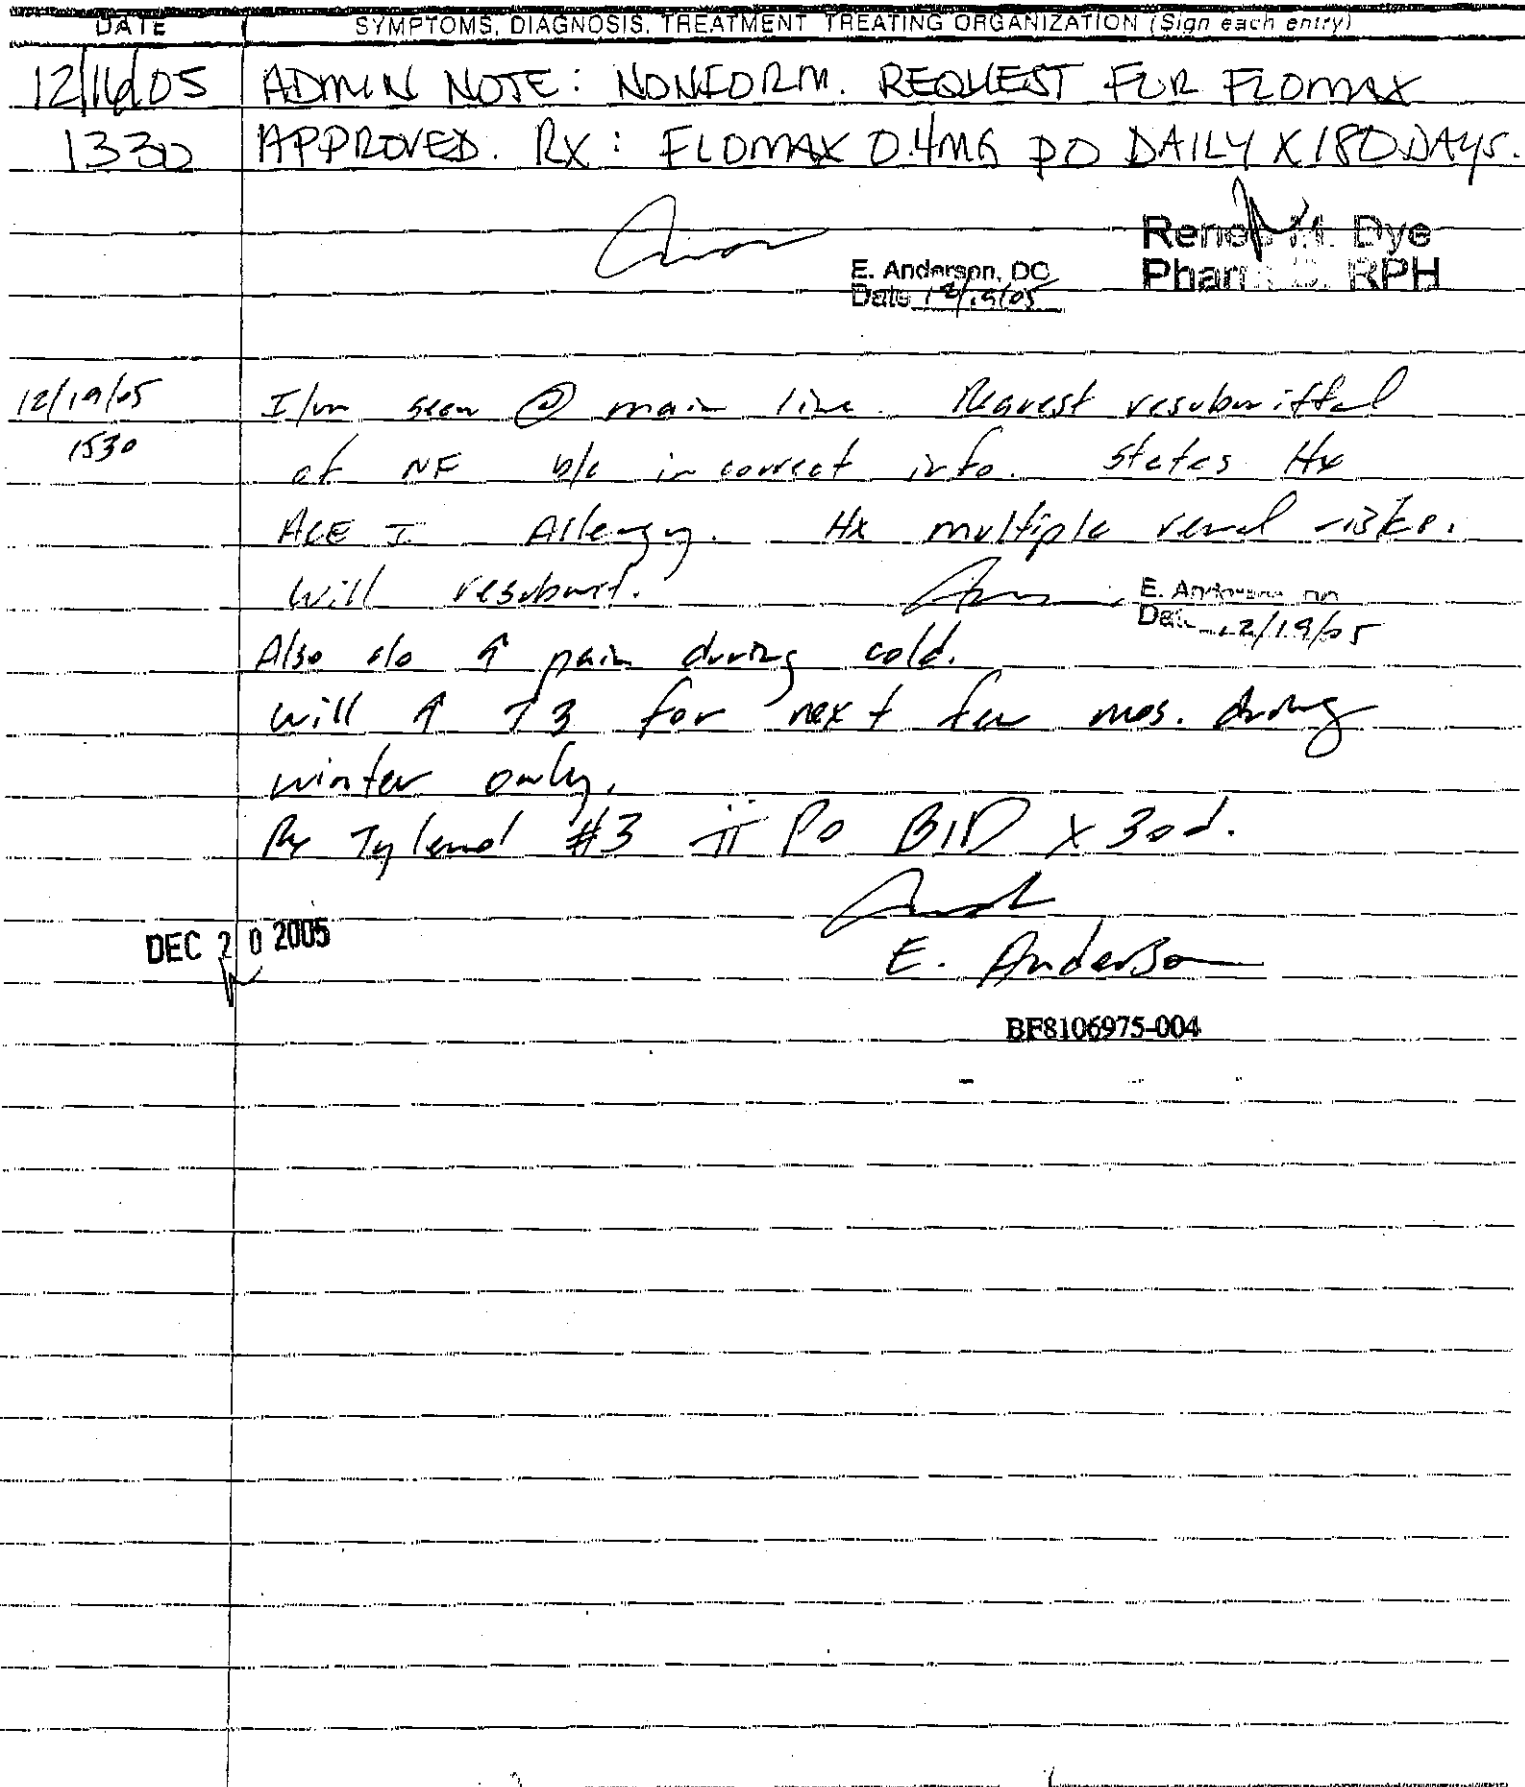 DATE SYMPTOMS, DIAGNOSIS, TREATMENT TREATING ORGANIZATION (Sign each entry)
12/16/05 ADMIN NOTE: NONFORM. REQUEST FOR FLOMAX
1330 APPROVED. RX: FLOMAX 0.4MG PO DAILY X 180 DAYS.
Renee M. Dye
E. Anderson, DO Pharm D. RPH
Date 12/19/05
12/19/05 I/m seen @ main line. Request resubmittal
1530 of NF b/c incorrect info. States Hx
ACE I Allergy. Hx multiple renal risks.
will resubmit. E. Anderson, DO
Date 12/19/05
Also c/o ↑ pain during cold.
will ↑ T3 for next few mos. during
winter only.
Rx Tylenol #3 ii Po BID x 30d.
DEC 20 2005
E. Anderson
BF8106975-004